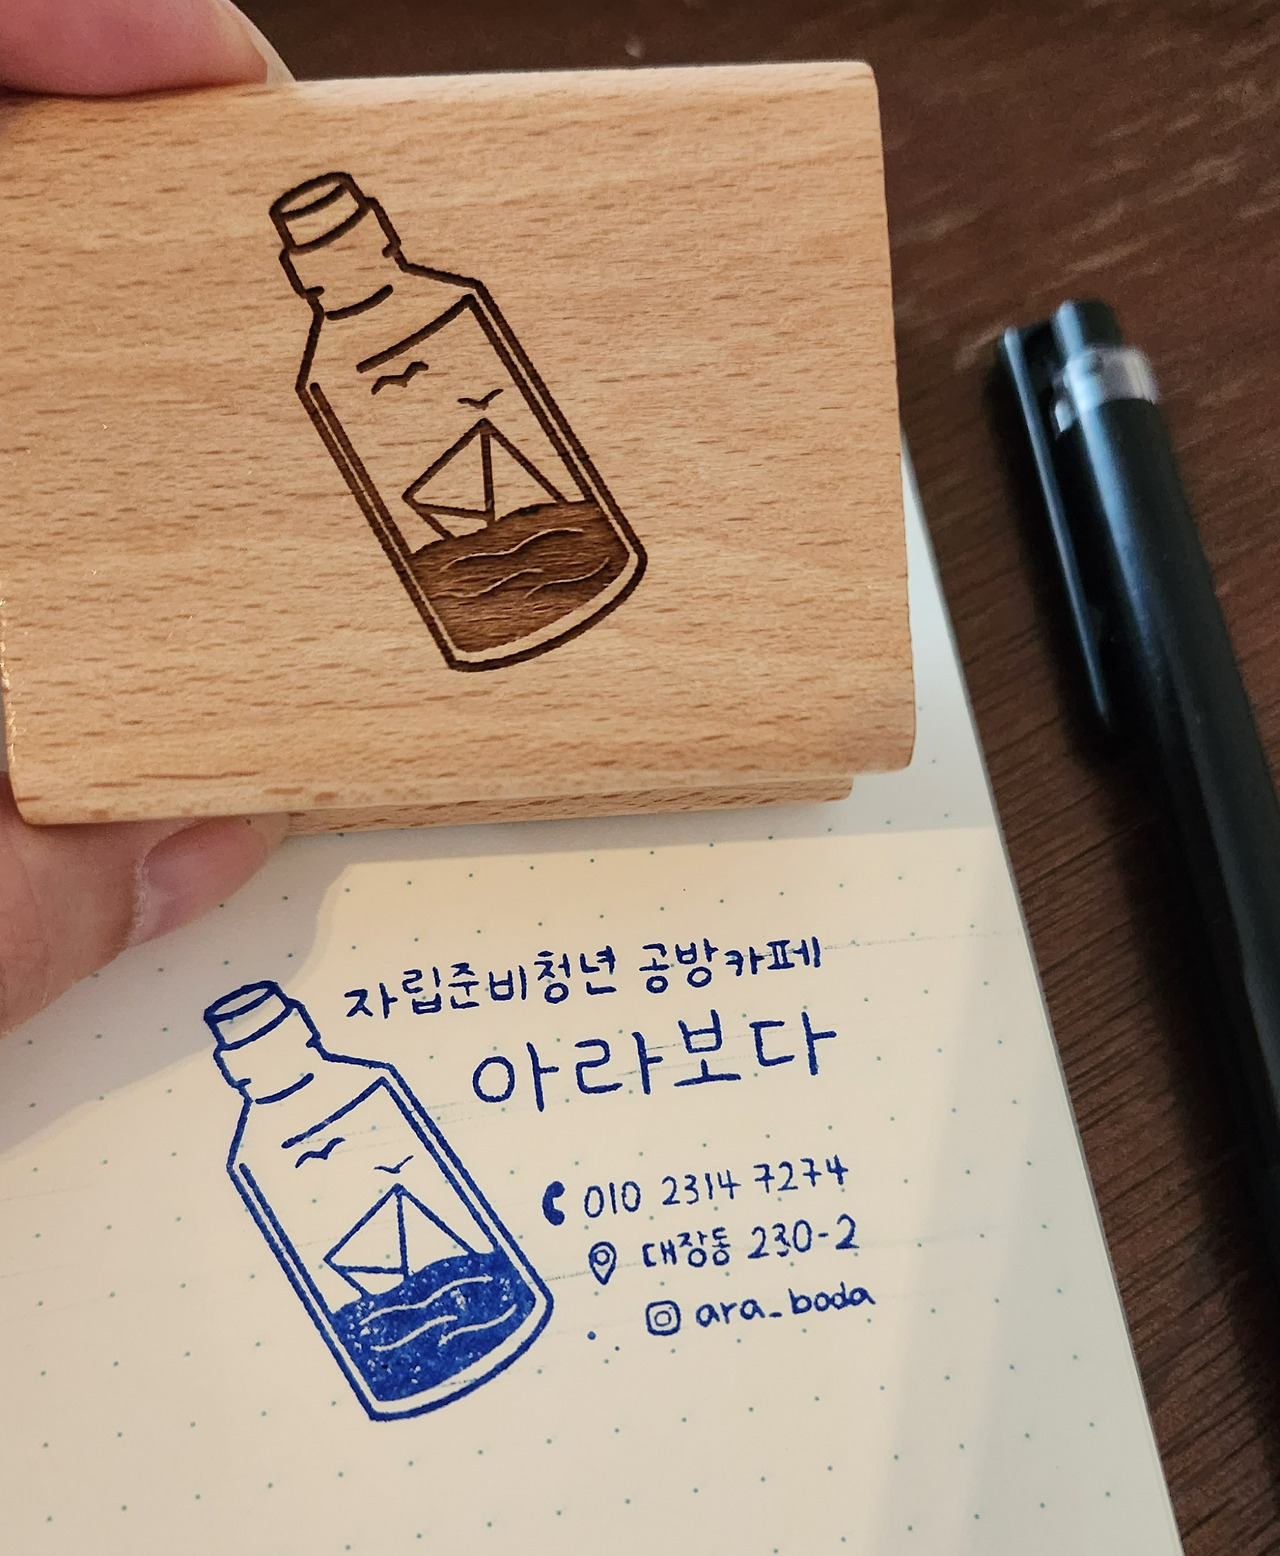 자립준비청년 공방카페
아라보다
010 2314 7274
대장동 230-2
ara_boda